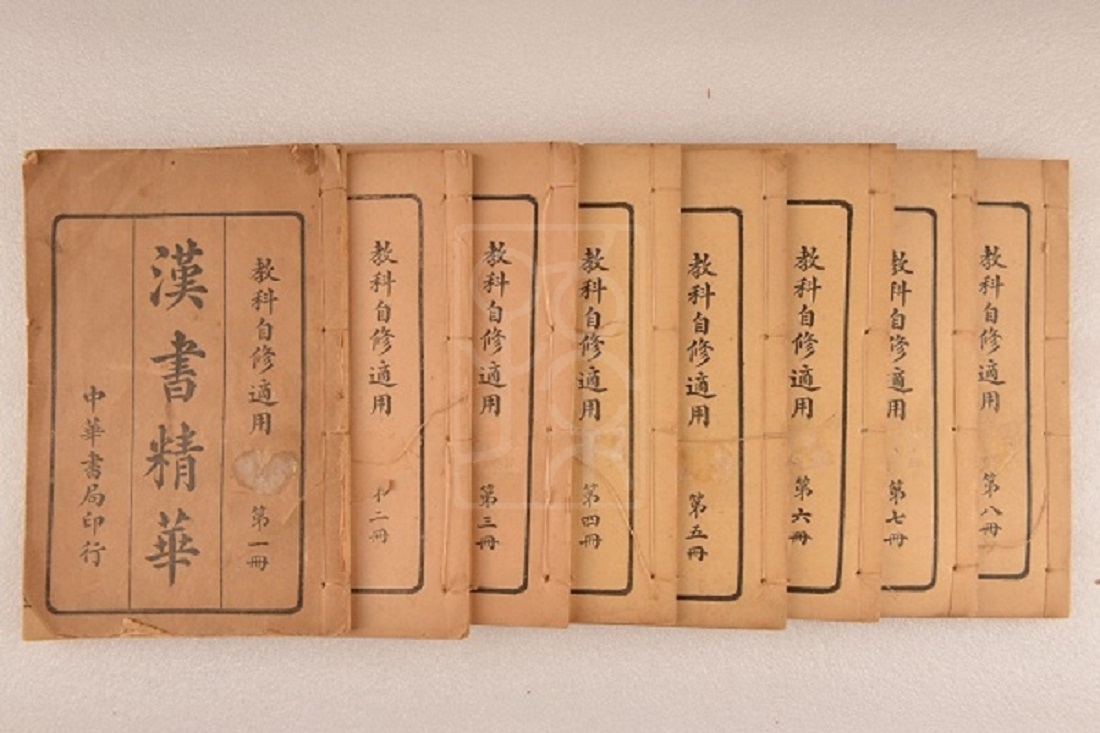 教科自修適用 第一冊
漢書精華
中華書局印行
教科自修適用 第二冊
教科自修適用 第三冊
教科自修適用 第四冊
教科自修適用 第五冊
教科自修適用 第六冊
教科自修適用 第七冊
教科自修適用 第八冊